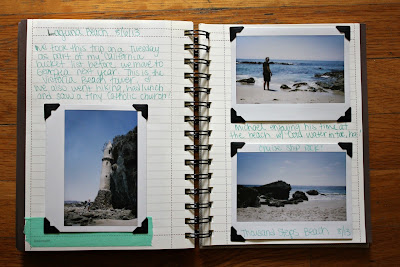 Laguna Beach 8/6/13
We took this trip on a Tuesday
as part of my California
bucket list before we move to
Georgia next year. This is the
Victoria Beach Tower :)
We also went hiking, had lunch
and saw a tiny Catholic church!
Michael enjoying his time at
the beach w/ cold water
Thousand Steps Beach 8/13